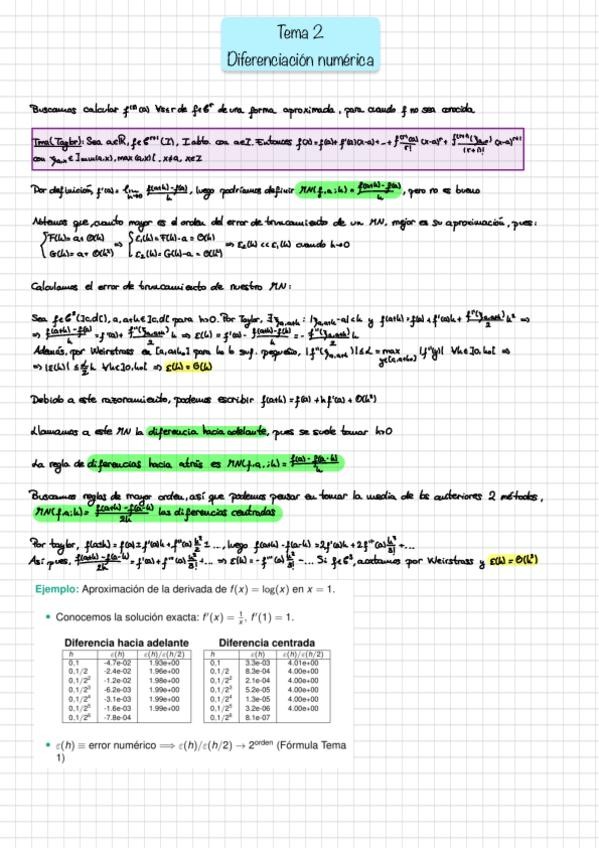 Tema 2
Diferenciación numérica
Buscamos calcular f⁽ʳ⁾(a) ∀r∈ℝ de f∈𝒞ʳ de una forma aproximada, para cuando f no sea conocida
Tma(Taylor): Sea a∈ℝ, f∈𝒞ʳ⁺¹(I), I abto con a∈I. Entonces f(x)=f(a)+f'(a)(x-a)+...+ f⁽ʳ⁾(a)/r! (x-a)ʳ + f⁽ʳ⁺¹⁾(ξₐ,ₓ)/(r+1)! (x-a)ʳ⁺¹
con ξₐ,ₓ∈]min(a,x), max(a,x)[, x≠a, x∈I
Por definición, f'(a)= lim h→0 (f(a+h)-f(a))/h, luego podríamos definir MN(f,a;h)= (f(a+h)-f(a))/h, pero no es bueno
Notemos que, cuanto mayor es el orden del error de truncamiento de un MN, mejor es su aproximación, pues:
F(h)= a+ O(h) ⇒ ε₁(h)=F(h)-a = O(h)
G(h)= a+ O(h²) ⇒ ε₂(h)= G(h)-a = O(h²) ⇒ ε₂(h) << ε₁(h) cuando h→0
Calculamos el error de truncamiento de nuestro MN:
Sea f∈𝒞²(]c,d[), a,a+h∈]c,d[ para h>0. Por Taylor, ∃ξₐ,ₐ₊ₕ : |ξₐ,ₐ₊ₕ-a|<h y f(a+h)=f(a)+f'(a)h+ f''(ξₐ,ₐ₊ₕ)/2 h² ⇒
⇒ (f(a+h)-f(a))/h = f'(a)+ f''(ξₐ,ₐ₊ₕ)/2 h ⇒ ε(h)= f'(a)- (f(a+h)-f(a))/h = - f''(ξₐ,ₐ₊ₕ)/2 h
Además, por Weirstrass en [a,a+h₀] para h₀ suf. pequeño, |f''(ξₐ,ₐ₊ₕ)|≤α= max y∈[a,a+h₀] |f''(y)| ∀h∈]0,h₀[ ⇒
⇒ |ε(h)| ≤ α/2 h ∀h∈]0,h₀[ ⇒ ε(h)= O(h)
Debido a este razonamiento, podemos escribir f(a+h)= f(a)+hf'(a)+ O(h²)
Llamamos a este MN la diferencia hacia adelante, pues se suele tomar h>0
La regla de diferencias hacia atrás es MN(f,a,;h)= (f(a)-f(a-h))/h
Buscamos reglas de mayor orden, así que podemos pensar en tomar la media de los anteriores 2 métodos,
MN(f,a;h)= (f(a+h)-f(a-h))/2h las diferencias centradas
Por taylor, f(a±h)= f(a)±f'(a)h+f''(a) h²/2 ± ..., luego f(a+h)-f(a-h)=2f'(a)h+2f'''(a) h³/3! +...
Así pues, (f(a+h)-f(a-h))/2h = f'(a)+f'''(a) h²/3! +... ⇒ ε(h)=-f'''(a) h²/3! - ... Si f∈𝒞³, acotamos por Weirstrass y ε(h)= O(h²)
Ejemplo: Aproximación de la derivada de f(x) = log(x) en x = 1.
• Conocemos la solución exacta: f'(x) = 1/x, f'(1) = 1.
Diferencia hacia adelante Diferencia centrada
h ε(h) ε(h)/ε(h/2) h ε(h) ε(h)/ε(h/2)
0,1 -4.7e-02 1.93e+00 0,1 3.3e-03 4.01e+00
0,1/2 -2.4e-02 1.96e+00 0,1/2 8.3e-04 4.00e+00
0,1/2² -1.2e-02 1.98e+00 0,1/2² 2.1e-04 4.00e+00
0,1/2³ -6.2e-03 1.99e+00 0,1/2³ 5.2e-05 4.00e+00
0,1/2⁴ -3.1e-03 1.99e+00 0,1/2⁴ 1.3e-05 4.00e+00
0,1/2⁵ -1.6e-03 1.99e+00 0,1/2⁵ 3.2e-06 4.00e+00
0,1/2⁶ -7.8e-04 0,1/2⁶ 8.1e-07
• ε(h) ≡ error numérico ⟹ ε(h)/ε(h/2) → 2ᵒʳᵈᵉⁿ (Fórmula Tema
1)